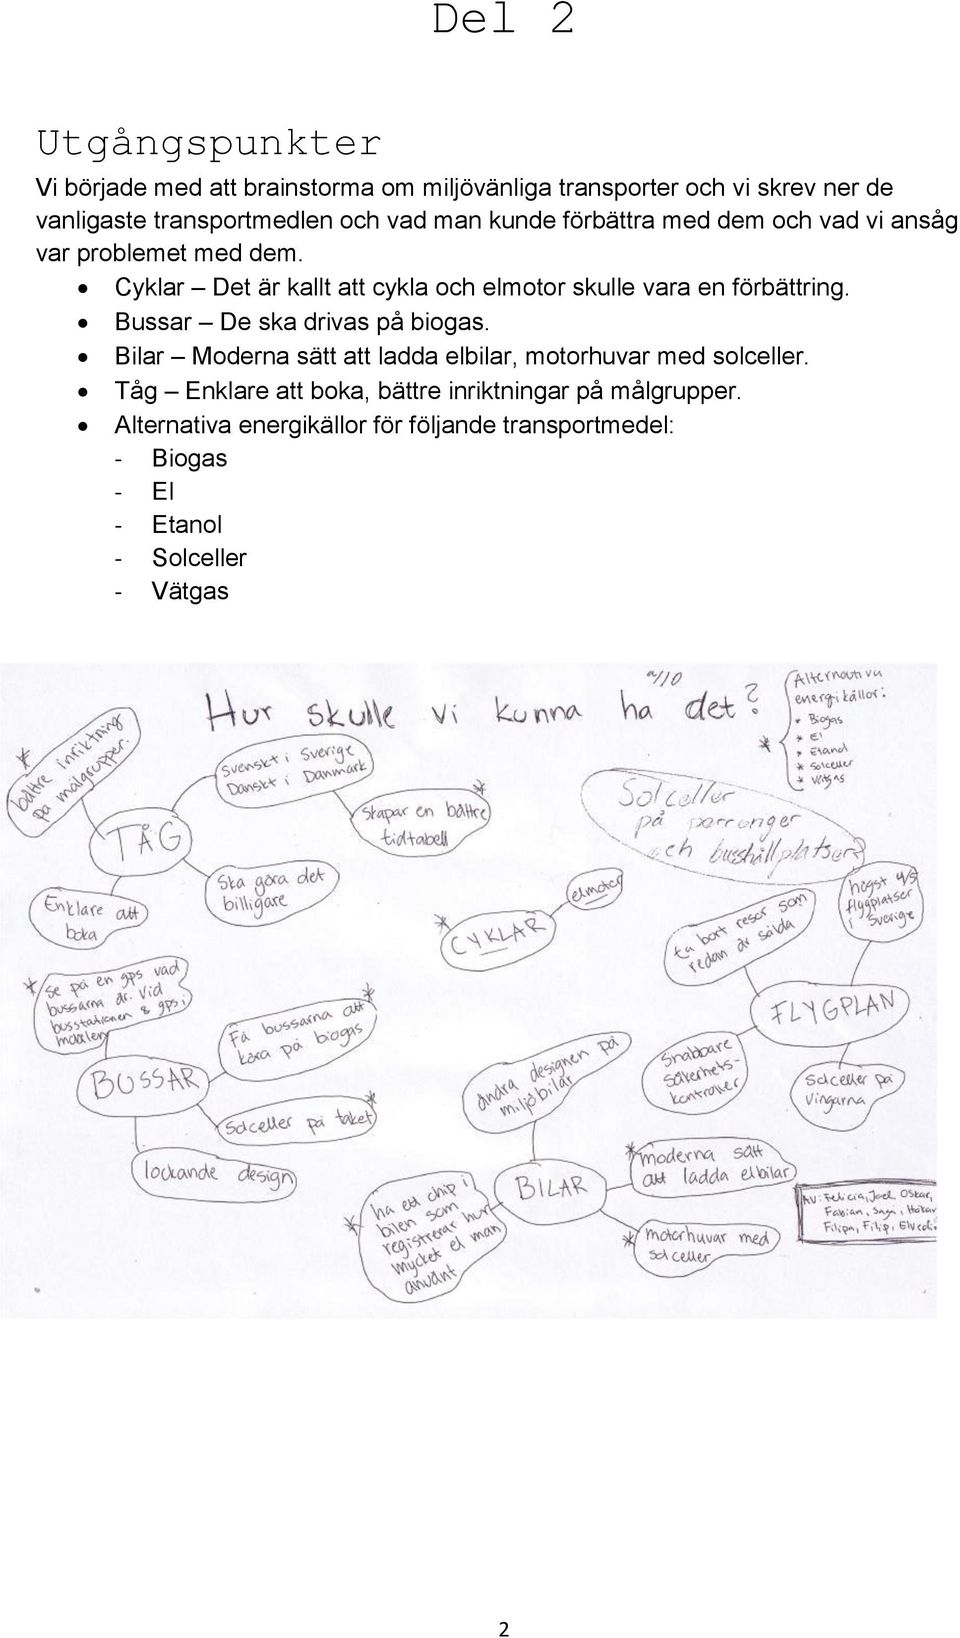 Del 2
Utgångspunkter
Vi började med att brainstorma om miljövänliga transporter och vi skrev ner de
vanligaste transportmedlen och vad man kunde förbättra med dem och vad vi ansåg
var problemet med dem.
• Cyklar – Det är kallt att cykla och elmotor skulle vara en förbättring.
• Bussar – De ska drivas på biogas.
• Bilar – Moderna sätt att ladda elbilar, motorhuvar med solceller.
• Tåg – Enklare att boka, bättre inriktningar på målgrupper.
• Alternativa energikällor för följande transportmedel:
- Biogas
- El
- Etanol
- Solceller
- Vätgas
Hur skulle vi kunna ha det?
/10
Alternativa
energikällor:
* Biogas
* El
* Etanol
* Solceller
* Vätgas
*
*
bättre inriktning
på målgrupper.
TÅG
Svenskt i Sverige
Danskt i Danmark
*
Skapar en bättre
tidtabell
Ska göra det
billigare
Enklare att
boka
Solceller
på perronger
och busshållplatser?
*
CYKLAR
elmotor
högst 4/5
flygplatser
i Sverige
ta bort resor som
redan är sålda
FLYGPLAN
Snabbare
säkerhets-
kontroller
Solceller på
vingarna
*
Se på en gps vad
bussarna är. Vid
busstationen & gps i
mobilen
BUSSAR
*
Få bussarna att
köra på biogas
*
Solceller på taket
lockande design
ändra designen på
miljöbilar
BILAR
*
moderna sätt
att ladda elbilar
*
motorhuvar med
solceller
*
ha ett chip i
bilen som
registrerar hur
mycket el man
använt
AV: Felicia, Joel, Oskar,
Fabian, Saga,
Filipa, Filip,
2